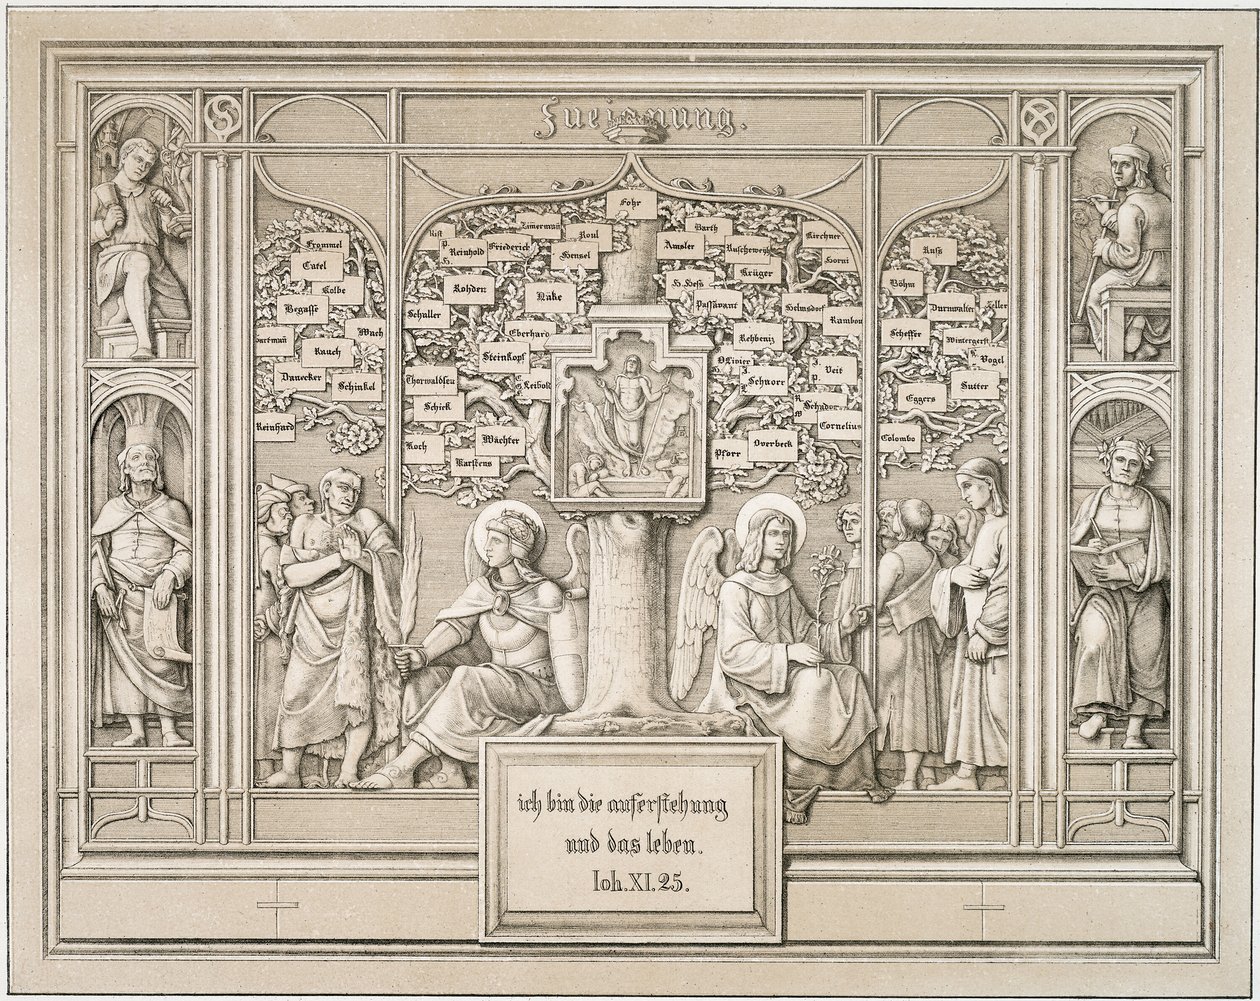 Zueignung.
Fohr
Rist
Zimermañ
Roul
Barth
Kirchner
Reinhold
Friederick
Hensel
Amsler
Ruscheweyh
Horni
Frommel
Catel
Kolbe
Rohden
Näke
H. Heß
Krüger
Ruß
Böhm
Begasse
Schaller
Passavant
Helmsdorf
Rambou
Durnwalter
Wach
Eberhard
Rehbeniz
Scheffer
Wintergerst
Rauch
Steinkopf
Olivier
J. Veit P.
Vogel
Danecker
Schinkel
Thorwaldsen
Leibold
J. Schnorr L.
Eggers
Sutter
Schick
Schadow
Reinhard
Koch
Wächter
Overbeck
Cornelius
Colombo
Karstens
Pforr
ich bin die auferstehung
und das leben.
Ioh. XI. 25.